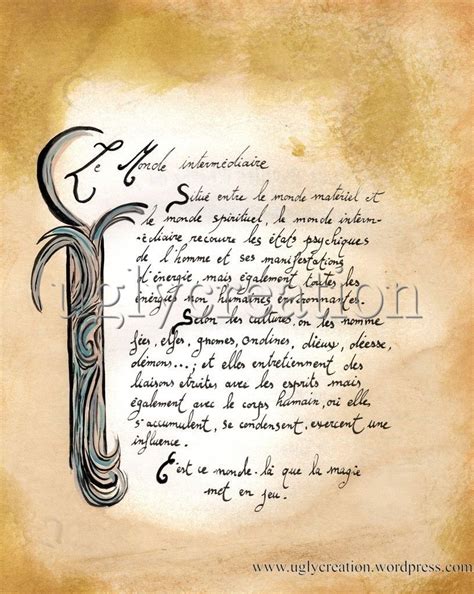 Le Monde intermédiaire
Situé entre le monde matériel et
le monde spirituel, le monde interm-
-édiaire recouvre les états psychiques
de l'homme et ses manifestations
d'énergie, mais également toutes les
énergies non humaines environnantes.
Selon les cultures, on les nomme
fées, elfes, gnomes, ondines, dieux, déesse,
démons...; et elles entretiennent des
liaisons etruites avec les esprits mais
également avec le corps humain, où elles
s'accumulent, se condensent, exercent une
influence.
C'est ce monde-là que la magie
met en jeu.
uglycreation
www.uglycreation.wordpress.com